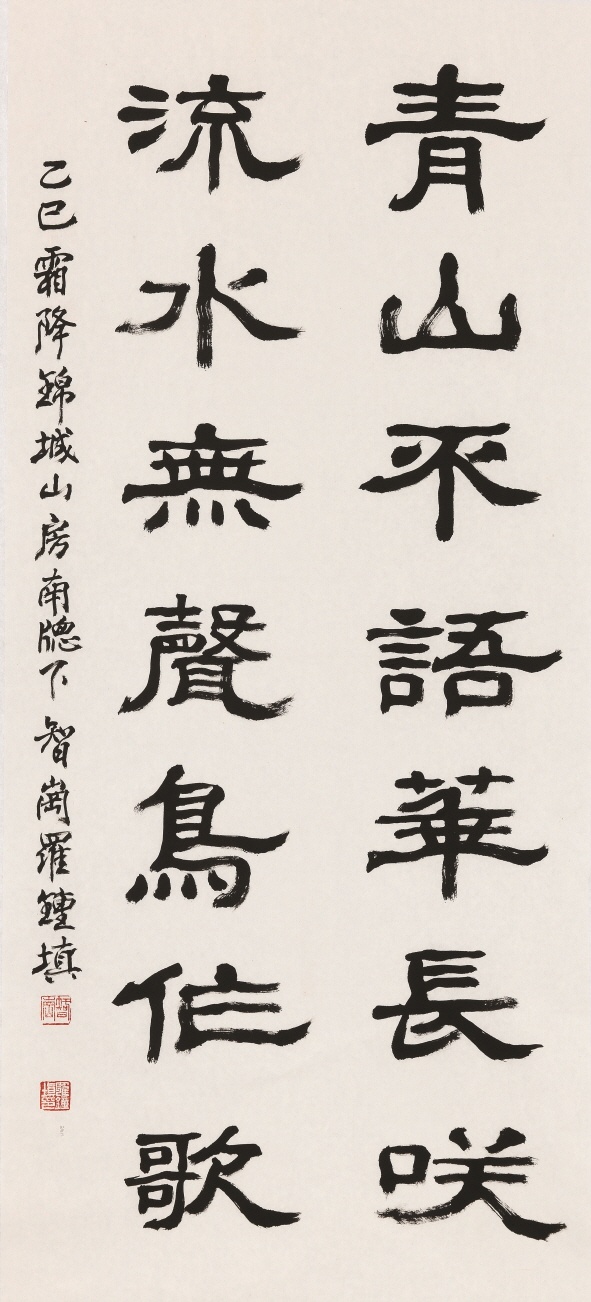 青山不語華長咲
流水無聲鳥作歌
乙巳霜降錦城山房南牕下智崗羅鍾填